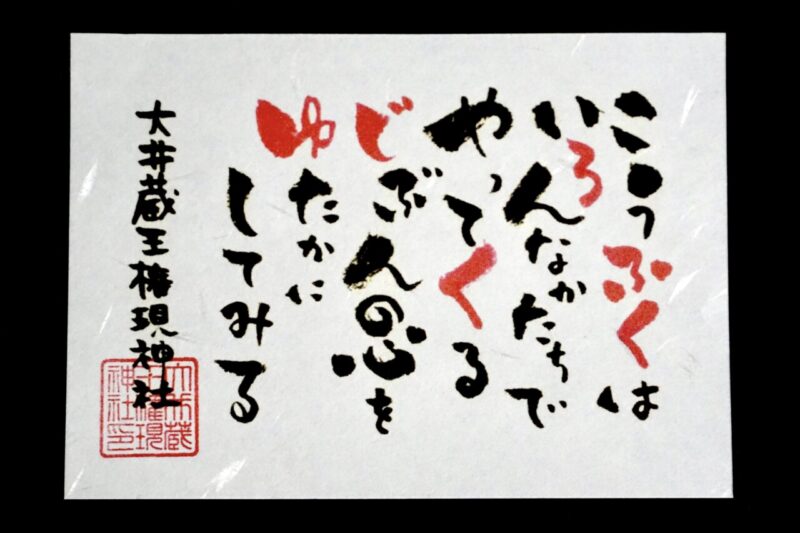 こうふくは
いろんなかたちで
やってくる
じぶんの心を
ゆたかに
してみる
大井蔵王権現神社
大井蔵
王権現
神社印